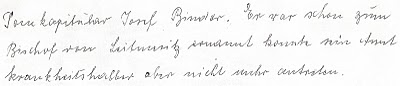 Domkapitular Josef Binder. Er war schon zum
Bischof von Leitmeritz ernannt konnte sein Amt
krankheitshalber aber nicht mehr antreten.